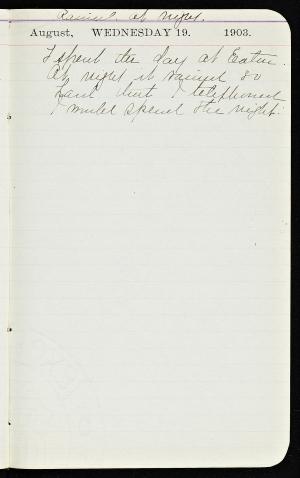 Rained at night.
August, WEDNESDAY 19. 1903.
I spent the day at Eaton.
At night it rained so
hard that I telephoned
I would spend the night.